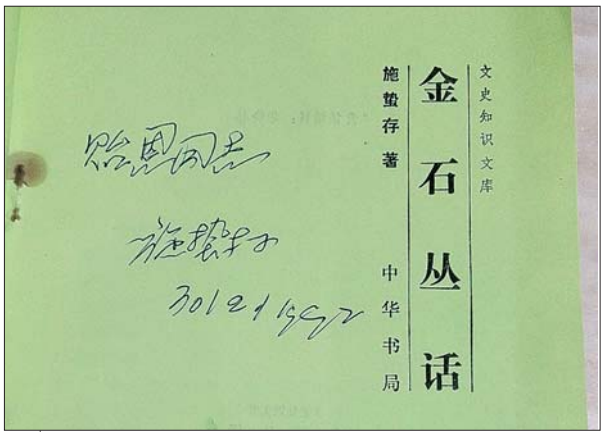 文史知识文库
金石丛话
施蛰存著
中华书局
贻恩同志
施蛰存
30/12/1992